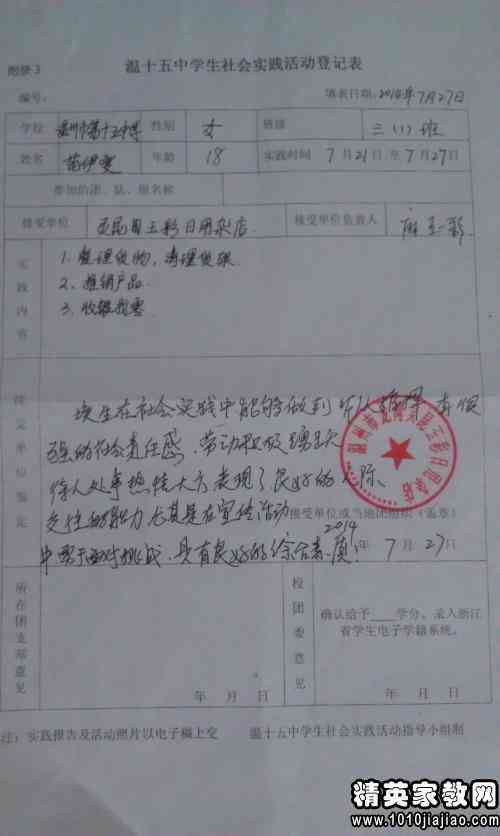 附录3
温十五中学生社会实践活动登记表
编号: 填表日期: 2014年7月27日
学校 温州市第十五中学 性别 女 班级 三(1)班
姓名 苗伊雯 年龄 18 实践时间 7月21日至7月27日
参加的团、队、组名称
接受单位 五彩日用杂店 接受单位负责人 麻玉彩
实践内容
1. 整理货物,清理货架
2、推销产品
3. 收银找零
接受单位鉴定
该生在社会实践中能够做到 有很
强的社会责任感,劳动积极踊跃
待人处事热情大方表现了良好的人际
交往的能力尤其是在宣传活动
接受单位或当地团组织(盖章)
中勇于面对挑战,具有良好的综合素质!
2014年7月27日
所在团支部意见
年 月 日
校团委意见
确认给予____学分。录入浙江
省学生电子学籍系统。
年 月 日
注:实践报告及活动照片以电子稿上交 温十五中学生社会实践活动指导小组制
精英家教网
www.1010jiajiao.com